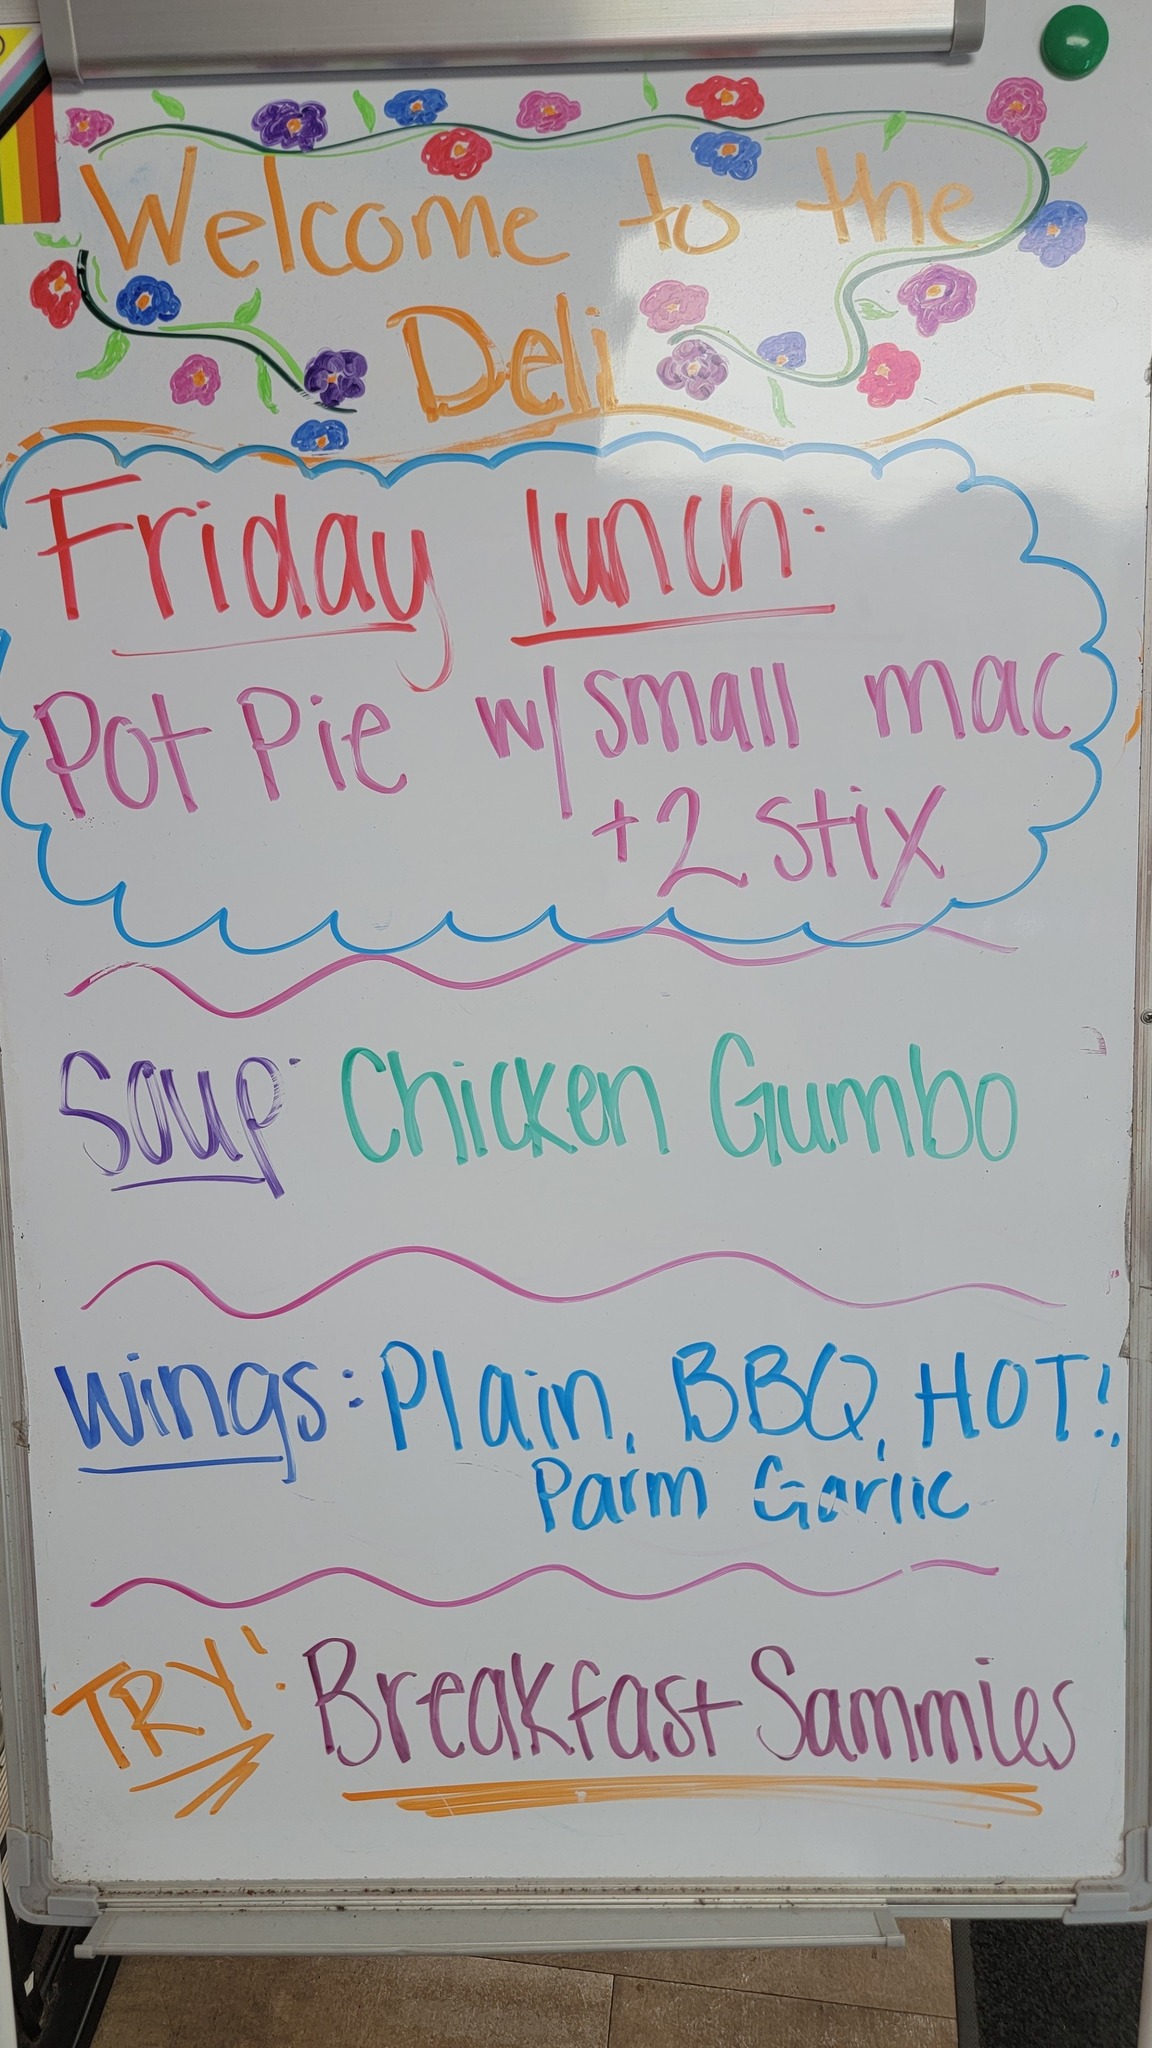 Welcome to the
Deli
Friday lunch:
Pot Pie w/ small mac
+ 2 stix
Soup: Chicken Gumbo
Wings: Plain, BBQ, HOT!,
Parm Garlic
TRY: Breakfast Sammies